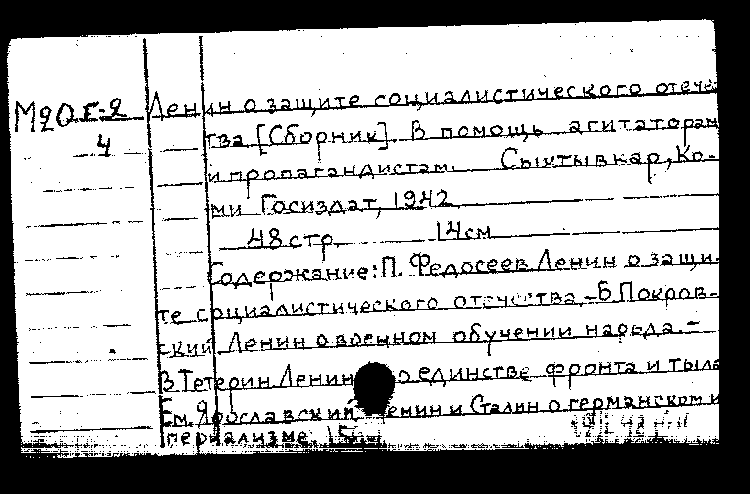 М20Г-2 Ленин о защите социалистического отече
4 тва [Сборник]. В помощь агитаторам
и пропагандистам. Сыктывкар, Ко-
ми Госиздат, 1942
48 стр. 14 см
Содержание: П. Федосеев Ленин о защи-
те социалистического отечества.-Б Покров-
ский Ленин о военном обучении народа.-
В. Тетерин. Ленин о единстве фронта и тыла
Ем. Ярославский Ленин и Сталин о германском и
периализме.